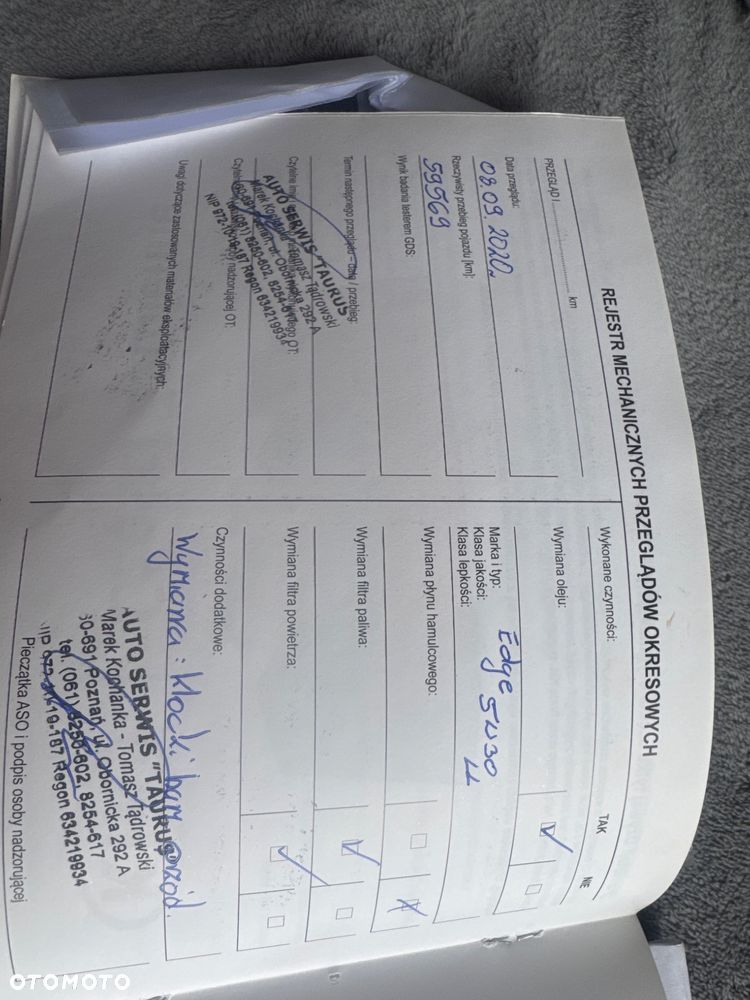 REJESTR MECHANICZNYCH PRZEGLĄDÓW OKRESOWYCH
PRZEGLĄD I ........................ km
Data przeglądu:
08.09.2020r
Rzeczywisty przebieg pojazdu [km]:
59569
Wynik badania testerem GDS:
Termin następnego przeglądu – data / przebieg:
Czytelne
OT:
nadzorującej OT:
AUTO SERWIS "TAURUS"
Marek Kochanka - Tomasz Tądrowski
60-691 Poznań, ul. Obornicka 292 A
tel. (061) 8250-602, 8254-617
NIP 972-10-19-187 Regon 634219934
Uwagi dotyczące zastosowanych materiałów eksploatacyjnych:
Wykonane czynności:
TAK
NIE
Wymiana oleju:
Marka i typ:
Klasa jakości:
Klasa lepkości:
Edge 5W30
LL
Wymiana płynu hamulcowego:
Wymiana filtra paliwa:
Wymiana filtra powietrza:
Czynności dodatkowe:
Wymiana: klocki ham przód.
AUTO SERWIS "TAURUS"
Marek Kochanka - Tomasz Tądrowski
60-691 Poznań, ul. Obornicka 292 A
tel. (061) 8250-602, 8254-617
NIP 972-10-19-187 Regon 634219934
Pieczątka ASO i podpis osoby nadzorującej
OTOMOTO